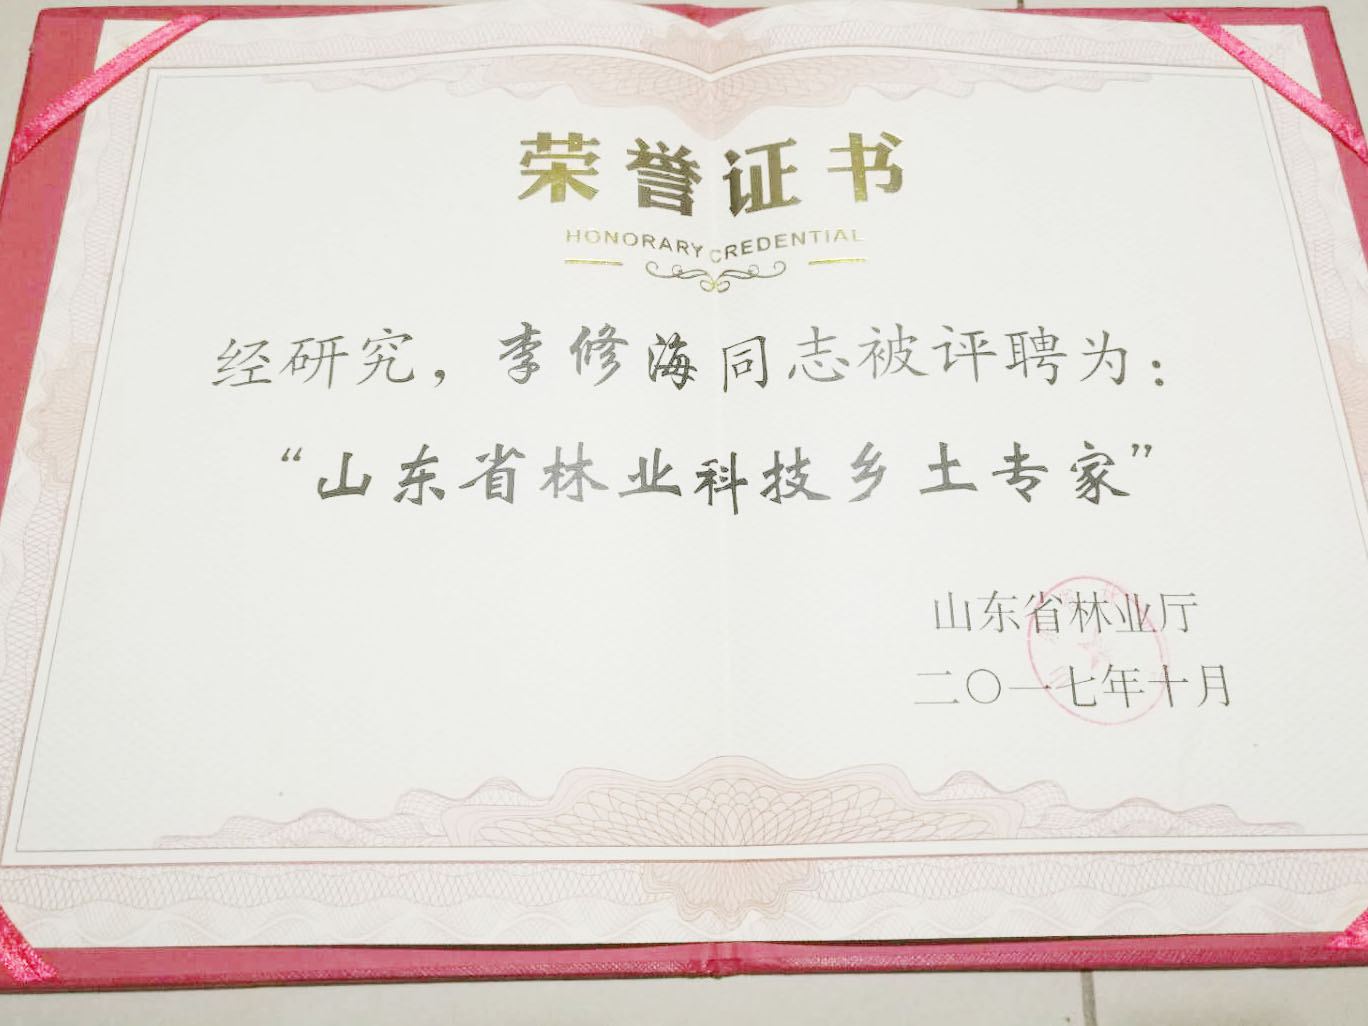 荣誉证书
HONORARY CREDENTIAL
经研究，李修海同志被评聘为：
“山东省林业科技乡土专家”
山东省林业厅
二〇一七年十月